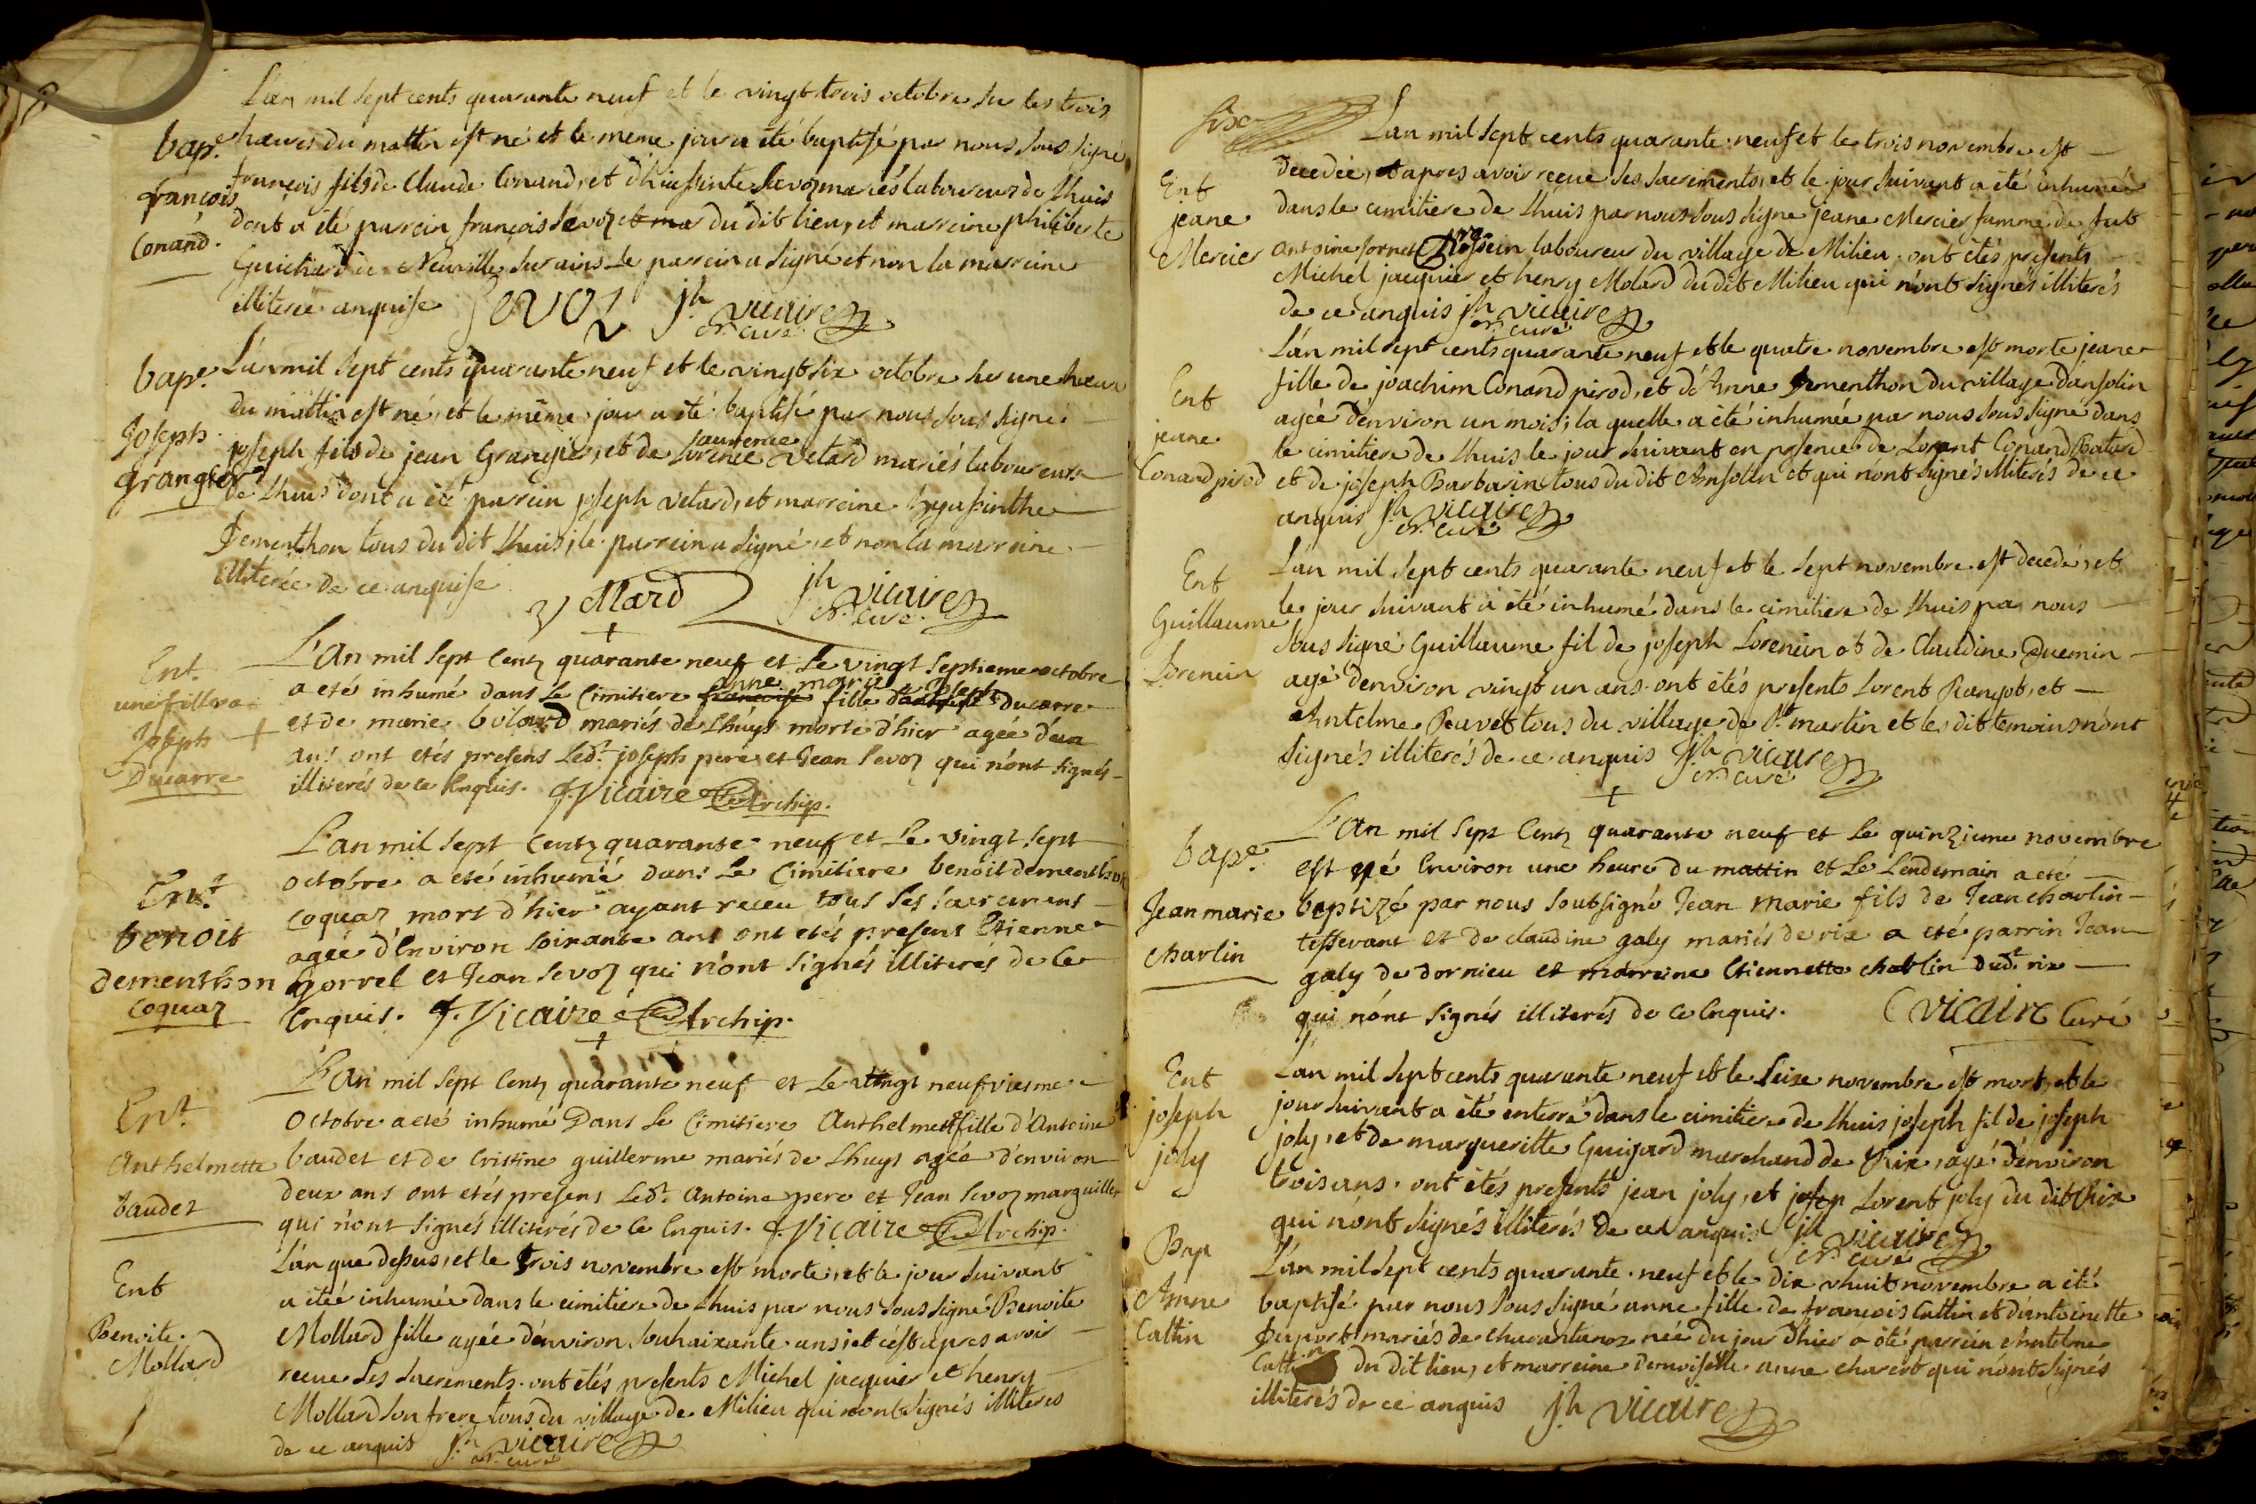 L'an mil sept cents quarante neuf et le vingt trois octobre sur les trois
bap.e
heures du mattin est né et le même jour a été baptisé par nous sous signé
françois
Conand.
françois fils de Claude Conand, et d'hiassinte Sevoz mariés laboureurs de Lhuis
dont a été parrein françois Sevoz et ma du dit lieu, et marreine philiberte
Neuville sur ains le parrein a signé et non la marreine
illiterée anquise Sevoz jh vicaire
cr. curé
bap.e
Joseph
Grangier
L'an mil sept cents quarante neuf et le vingt six octobre sur une heure
du mattin est né, et le même jour a été baptisé par nous sous signé
joseph fils de jean Grangier, et de Lorence laurence Velard mariés laboureurs
de Lhuis dont a été parrein joseph velard, et marreine hyassinthe
Dementhon tous du dit Lhuis, le parrein a signé, et non la marreine
illiterée de ce anquise
jh vicaire
cr. curé
Ent.
une fille a
Joseph
Ducarre
L'an mil sept Centz quarante neuf et Le vingt septieme octobre
a eté inhumé dans Le Cimitiere francoise anne marie fille de joseph Ducarre
et de marie bolard mariés de Lhuys morte d'hier agée d'un
an. ont etés presens Led.t joseph pere et Jean Sevoz qui n'ont signés
illiterés de ce Enquis. J. Vicaire C. Archip.
Ent.
benoit
dementhon
Coquaz
L'an mil sept Centz quarante neuf et Le vingt sept
octobre a eté inhumé dans Le Cimitiere benoit dementhon
Coquaz mort d'hier ayant receu tous ses sacremens
agée d'Environ soixante ans ont etés presens Etienne
gorrel et Jean Sevoz qui n'ont signés illiterés de Ce
Enquis. J. Vicaire C. Archip.
Ent.
Anthelmette
baudet
L'an mil sept Centz quarante neuf et Le vingt neufviesme
octobre a eté inhumé Dans Le Cimitiere Anthelmette fille d'Antoine
baudet et de Cristine guillerme mariés de Lhuys agée d'environ
deux ans ont etés presens Led.t Antoine pere et Jean Sevoz marguillier
qui n'ont signés illiterés de Ce Enquis. J. Vicaire C. Archip.
Ent
Benoite
Mollard
L'an que dessus, et le trois novembre est morte, et le jour suivant
a été inhumée dans le cimitiere de Lhuis par nous sous signé Benoite
Mollard fille agée d'environ souhaixante ans, et c'est apres avoir
receue ses sacrements. ont étés presents Michel jacquier et henry
Mollard son frere tous du village de Milieu qui n'ont signés illiterés
de ce anquis jh vicaire
cr. curé
Ent
jeane
Mercier
L'an mil sept cents quarante neuf et le trois novembre est
decedée, et apres avoir receue ses sacrements, et le jour suivant a été inhumée
dans le cimitiere de Lhuis par nous sous signé jeane Mercier famme de fut
antoine laboureur du village de Milieu. ont étés presents
Michel jacquier et henry Molard du dit Milieu qui n'ont signés illiterés
de ce anquis jh vicaire
cr. curé
Ent
jeane
Conand pirod
L'an mil sept cents quarante neuf et le quatre novembre est morte jeane
fille de joachim Conand pirod, et d'Anne Dementhon du village dansolin
agée d'environ un mois, la quelle a été inhumée par nous sous signé dans
le cimitiere de Lhuis le jour suivant en presence de Lorent Conand
et de joseph Barbarin tous du dit Ansolin et qui n'ont signés illiterés de ce
anquis jh vicaire
cr. curé
Ent
Guillaume
Lorencin
L'an mil sept cents quarante neuf et le sept novembre est decedé, et
le jour suivant a été inhumé dans le cimitiere de Lhuis par nous
sous signé Guillaume fil de joseph Lorencin et de Claudine Duemin
agé d'environ vingt un ans. ont étés presents Lorent Rangot, et
Antelme Peuvet tous du village de St martin et les dit temoins n'ont
signés illiterés de ce anquis jh vicaire
cr. curé
bap.e
Jean marie
charlin
L'an mil sept Centz quarante neuf et Le quinzieme novembre
est né Environ une heure du mattin et Le Lendemain a eté
baptizé par nous soubsigné Jean marie fils de Jean charlin
tesserant et de claudine galy mariés de rix a eté parrin Jean
galy de dornieu et marreine Etiennette charlin dud.t rix
qui n'ont signés illiterés de Ce Enquis. Vicaire Curé
Ent
joseph
joly
L'an mil sept cents quarante neuf et le seize novembre est mort, et le
jour suivant a été enterré dans le cimitiere de Lhuis joseph fil de joseph
joly, et de marguerite Guigard marchand de Rix, agé d'environ
trois ans. ont étés presents jean joly, et josep Lorent joly du dit Rix
qui n'ont signés illiterés de ce anquis jh vicaire
cr. curé
Bap
Anne
Cattin
L'an mil sept cents quarante neuf et le dix vhuit novembre a été
baptisé par nous sous signé anne fille de francois Cattin et d'antoinette
Duport mariés de charantanoz née du jour d'hier a été parrein Antelme
Cattin du dit lieu, et marreine demoiselle anne charcot qui n'ont signés
illiterés de ce anquis jh vicaire